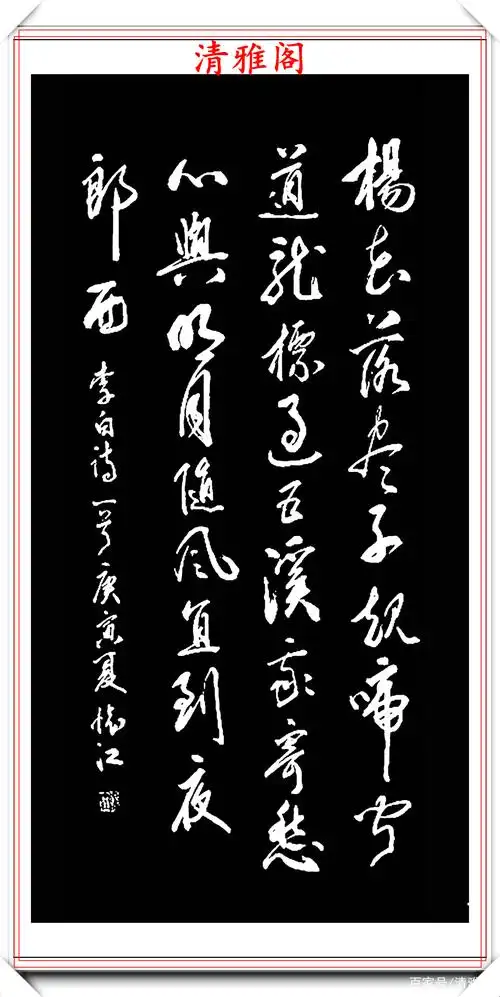 清雅阁
楊花落尽子規啼闻
道龍標過五溪我寄愁
心與明月隨風直到夜
郎西 李白诗一首 庚寅夏 江
百家号/清雅